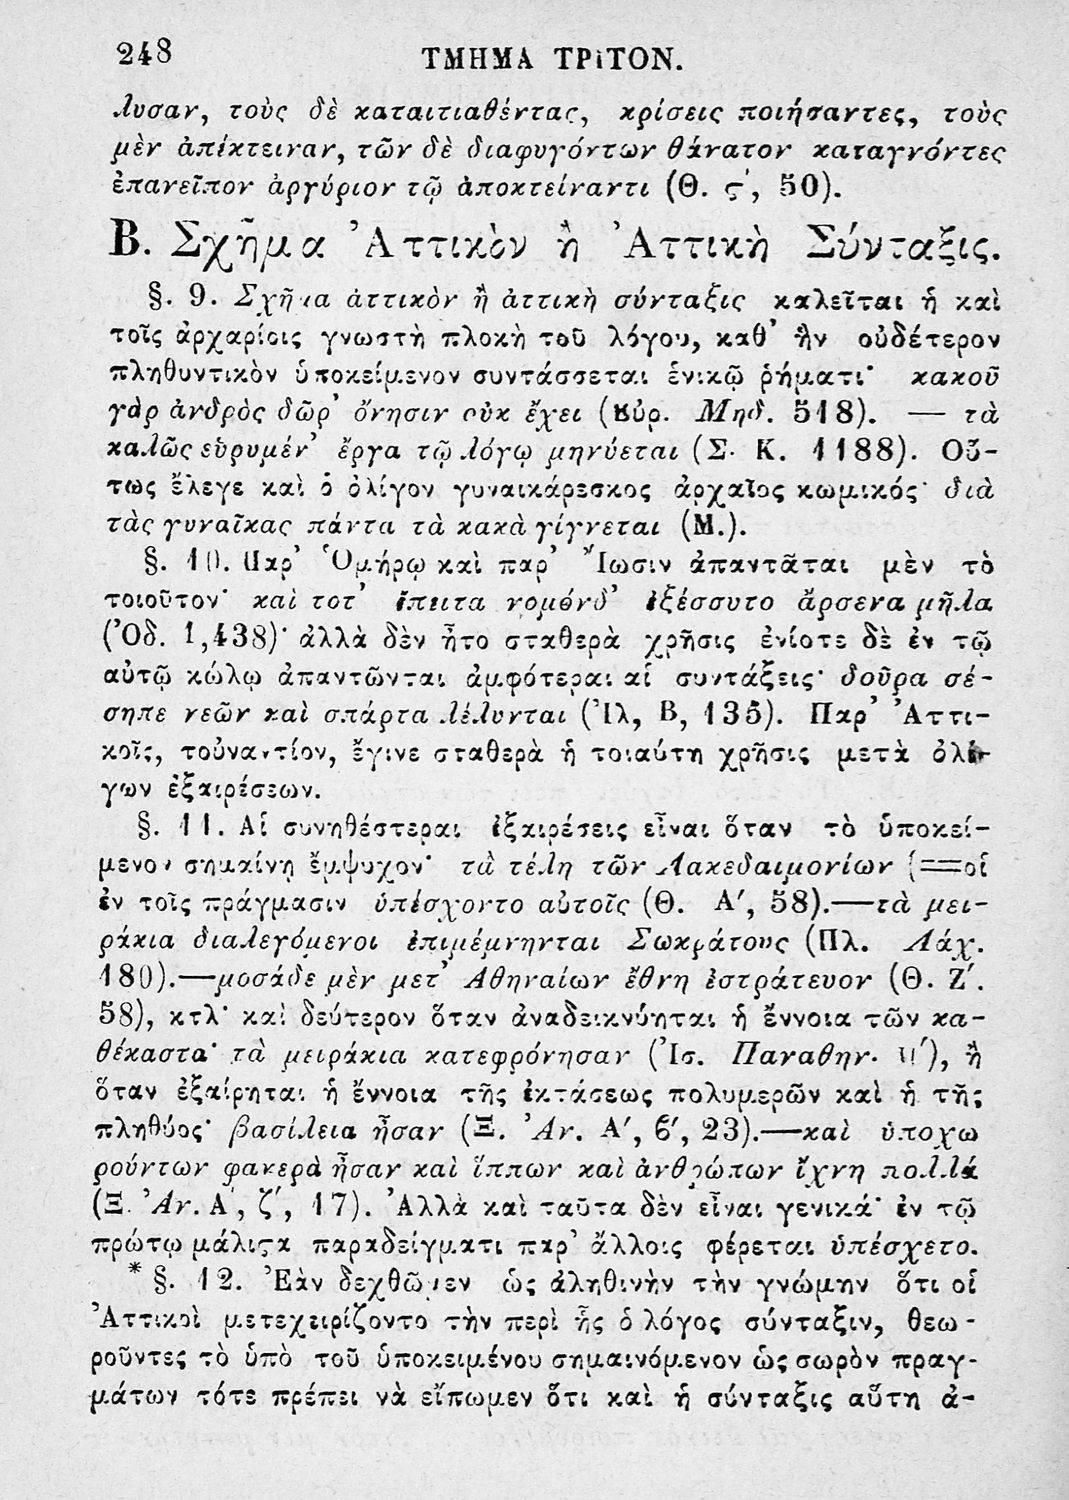 248 ΤΜΗΜΑ ΤΡΙΤΟΝ.
λυσαν, τοὺς δὲ καταιτιαθέντας, κρίσεις ποιήσαντες, τοὺς
μὲν ἀπέκτειναν, τῶν δὲ διαφυγόντων θάνατον καταγνόντες
ἐπανεῖπον ἀργύριον τῷ ἀποκτείναντι (Θ. ϛ΄, 50).
Β. Σχῆμα Ἀττικὸν ἢ Ἀττικὴ Σύνταξις.
§. 9. Σχῆμα ἀττικὸν ἢ ἀττικὴ σύνταξις καλεῖται ἡ καὶ
τοῖς ἀρχαρίοις γνωστὴ πλοκὴ τοῦ λόγου, καθ᾽ ἣν οὐδέτερον
πληθυντικὸν ὑποκείμενον συντάσσεται ἑνικῷ ῥήματι· κακοῦ
γὰρ ἀνδρὸς δῶρ᾽ ὄνησιν οὐκ ἔχει (Εὐρ. Μηδ. 518). — τὰ
καλῶς εὑρυμέν᾽ ἔργα τῷ λόγῳ μηνύεται (Σ. Κ. 1188). Οὕ-
τως ἔλεγε καὶ ὁ ὀλίγον γυναικάρεσκος ἀρχαῖος κωμικός· διὰ
τὰς γυναῖκας πάντα τὰ κακὰ γίγνεται (Μ.).
§. 10. Παρ᾽ Ὁμήρῳ καὶ παρ᾽ Ἴωσιν ἀπαντᾶται μὲν τὸ
τοιοῦτον· καὶ τοτ᾽ ἔπειτα νομόνδ᾽ ἐξέσσυτο ἄρσενα μῆλα
(Ὀδ. 1,438)· ἀλλὰ δὲν ἦτο σταθερὰ χρῆσις ἐνίοτε δὲ ἐν τῷ
αὐτῷ κώλῳ ἀπαντῶνται ἀμφότεραι αἱ συντάξεις· δοῦρα σέ-
σηπε νεῶν καὶ σπάρτα λέλυνται (Ἰλ, Β, 135). Παρ᾽ Ἀττι-
κοῖς, τοὐναντίον, ἔγινε σταθερὰ ἡ τοιαύτη χρῆσις μετὰ ὀλί-
γων ἐξαιρέσεων.
§. 11. Αἱ συνηθέστεραι ἐξαιρέσεις εἶναι ὅταν τὸ ὑποκεί-
μενον σημαίνῃ ἔμψυχον· τὰ τέλη τῶν Λακεδαιμονίων (==οἱ
ἐν τοῖς πράγμασιν ὑπέσχοντο αὐτοῖς (Θ. Α΄, 58).—τὰ μει-
ράκια διαλεγόμενοι ἐπιμέμνηνται Σωκράτους (Πλ. Λάχ.
180).—μοσάδε μὲν μετ᾽ Ἀθηναίων ἔθνη ἐστράτευον (Θ. Ζ΄.
58), κτλ· καὶ δεύτερον ὅταν ἀναδεικνύηται ἡ ἔννοια τῶν κα-
θέκαστα· τὰ μειράκια κατεφρόνησαν (Ἰσ. Παναθην. ), ἢ
ὅταν ἐξαίρηται ἡ ἔννοια τῆς ἐκτάσεως πολυμερῶν καὶ ἡ τῆς
πληθύος· βασίλεια ἦσαν (Ξ. Ἀν. Α΄, β΄, 23).—καὶ ὑποχω
ρούντων φανερὰ ἦσαν καὶ ἵππων καὶ ἀνθρώπων ἴχνη πολλά
(Ξ. Ἀν. Α΄, ζ΄, 17). Ἀλλὰ καὶ ταῦτα δὲν εἶναι γενικά· ἐν τῷ
πρώτῳ μάλιστα παραδείγματι παρ᾽ ἄλλοις φέρεται ὑπέσχετο.
* §. 12. Ἐὰν δεχθῶμεν ὡς ἀληθινὴν τὴν γνώμην ὅτι οἱ
Ἀττικοὶ μετεχειρίζοντο τὴν περὶ ἧς ὁ λόγος σύνταξιν, θεω-
ροῦντες τὸ ὑπὸ τοῦ ὑποκειμένου σημαινόμενον ὡς σωρὸν πραγ-
μάτων τότε πρέπει νὰ εἴπωμεν ὅτι καὶ ἡ σύνταξις αὕτη ἀ-